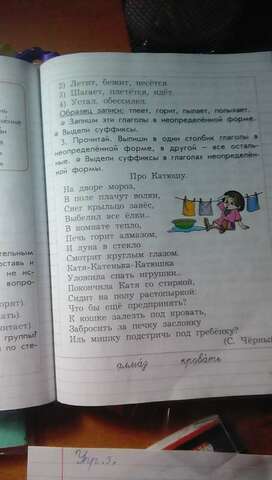 2) Летит, бежит, несётся.
3) Шагает, плетётся, идёт.
4) Устал, обессилел.
Образец записи: тлеет, горит, пылает, полыхает.
Запиши эти глаголы в неопределённой форме.
Выдели суффиксы.
3. Прочитай. Выпиши в один столбик глаголы в
неопределённой форме, в другой — все осталь-
ные. Выдели суффиксы в глаголах неопределён-
ной формы.
Про Катюшу
На дворе мороз,
В поле плачут волки,
Снег крыльцо занёс,
Выбелил все ёлки..
В комнате тепло,
Печь горит алмазом,
И луна в стекло
Смотрит круглым глазом.
Катя-Катенька-Катюшка
Уложила спать игрушки..
Покончила Катя со стиркой,
Сидит на полу растопыркой:
Что бы ещё предпринять?
К кошке залезть под кровать,
Забросить за печку заслонку
Иль мишку подстричь под гребёнку?
(С. Чёрный
алмаз кровать
тельным
оставь к
не ис-
вопро-
орят)
читает)
группы?
по сте-
Упр.3.